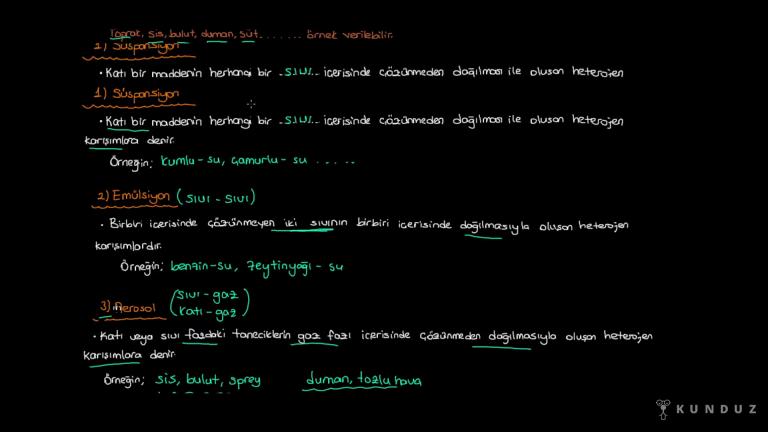 Toprak, sis, bulut, duman, süt....... örnek verilebilir.
1) Süspansiyon
• Katı bir maddenin herhangi bir .sıvı.. içerisinde çözünmeden dağılması ile oluşan heterojen
1) Süspansiyon
• Katı bir maddenin herhangi bir .sıvı.. içerisinde çözünmeden dağılması ile oluşan heterojen
karışımlara denir.
Örneğin; kumlu-su, çamurlu-su .....
2) Emülsiyon (sıvı - sıvı)
• Birbiri içerisinde çözünmeyen iki sıvının birbiri içerisinde dağılmasıyla oluşan heterojen
karışımlardır.
Örneğin; benzin-su, zeytinyağı-su
3) Aerosol (sıvı-gaz
katı-gaz)
• Katı veya sıvı fazdaki taneciklerin gaz fazı içerisinde çözünmeden dağılmasıyla oluşan heterojen
karışımlara denir.
Örneğin; sis, bulut, sprey duman, tozlu hava
KUNDUZ